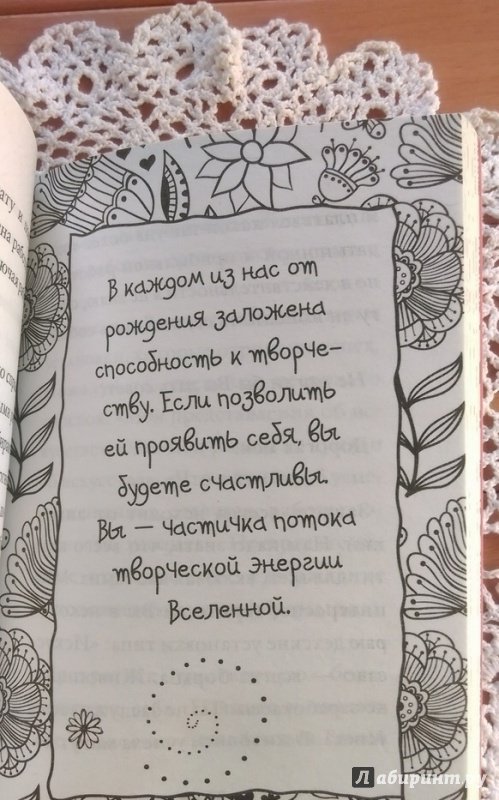 В каждом из нас от
рождения заложена
способность к творче-
ству. Если позволить
ей проявить себя, вы
будете счастливы.
Вы — частичка потока
творческой энергии
Вселенной.
Лабиринт.ру